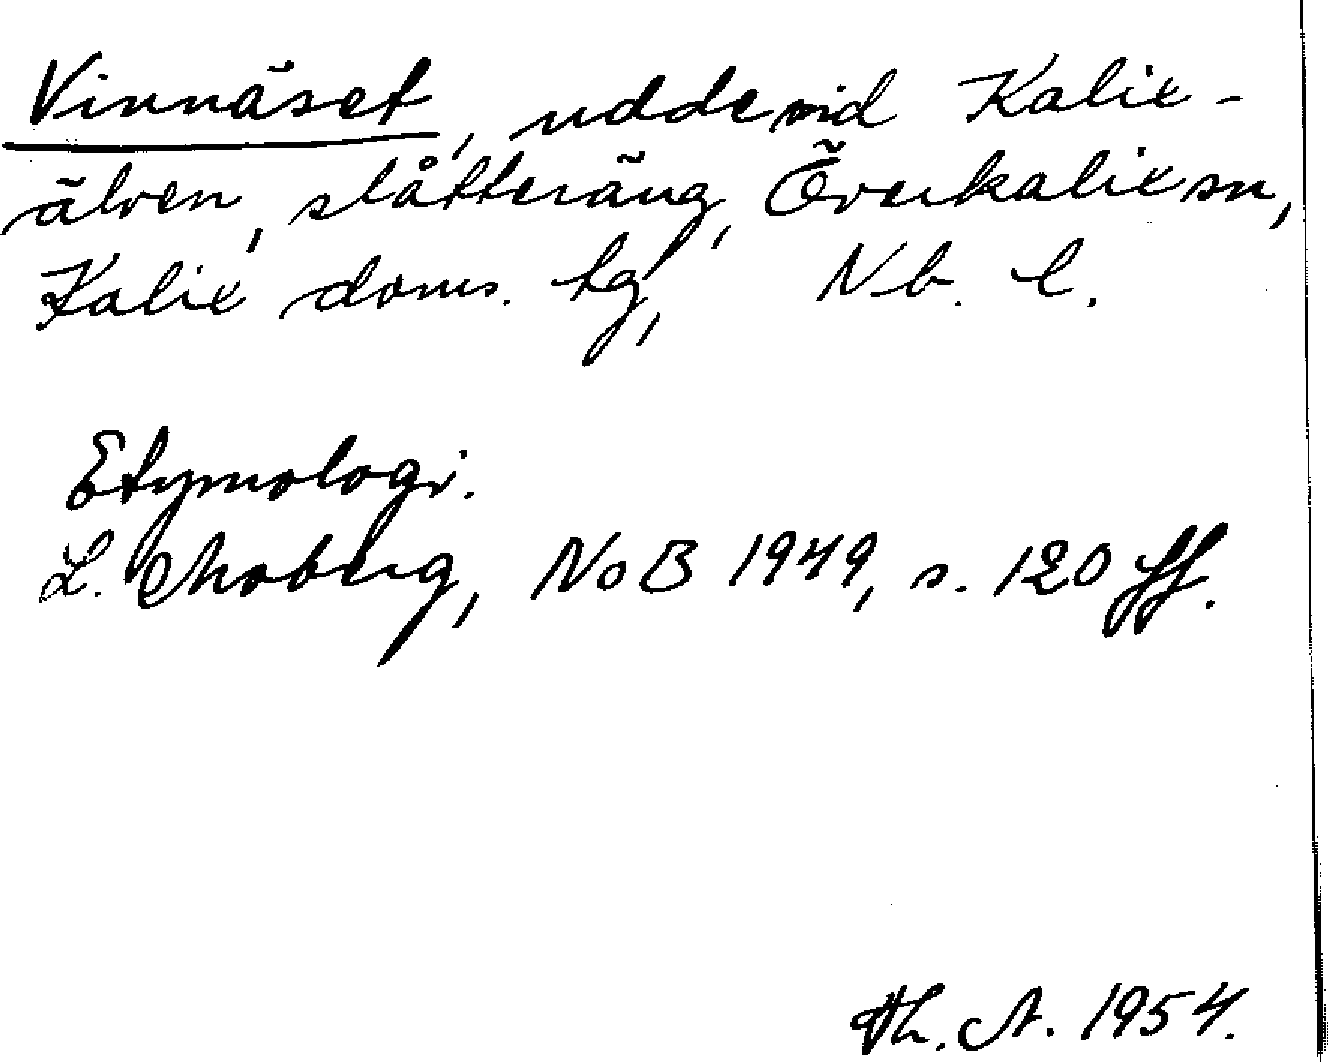 Vinnäset, udde vid Kalix-
älven, slåtteräng, Överkalix sn,
Kalix doms. tg, Nb. l.
Etymologi.
L. Moberg, NoB 1949, s. 120 ff.
Th. A. 1954.